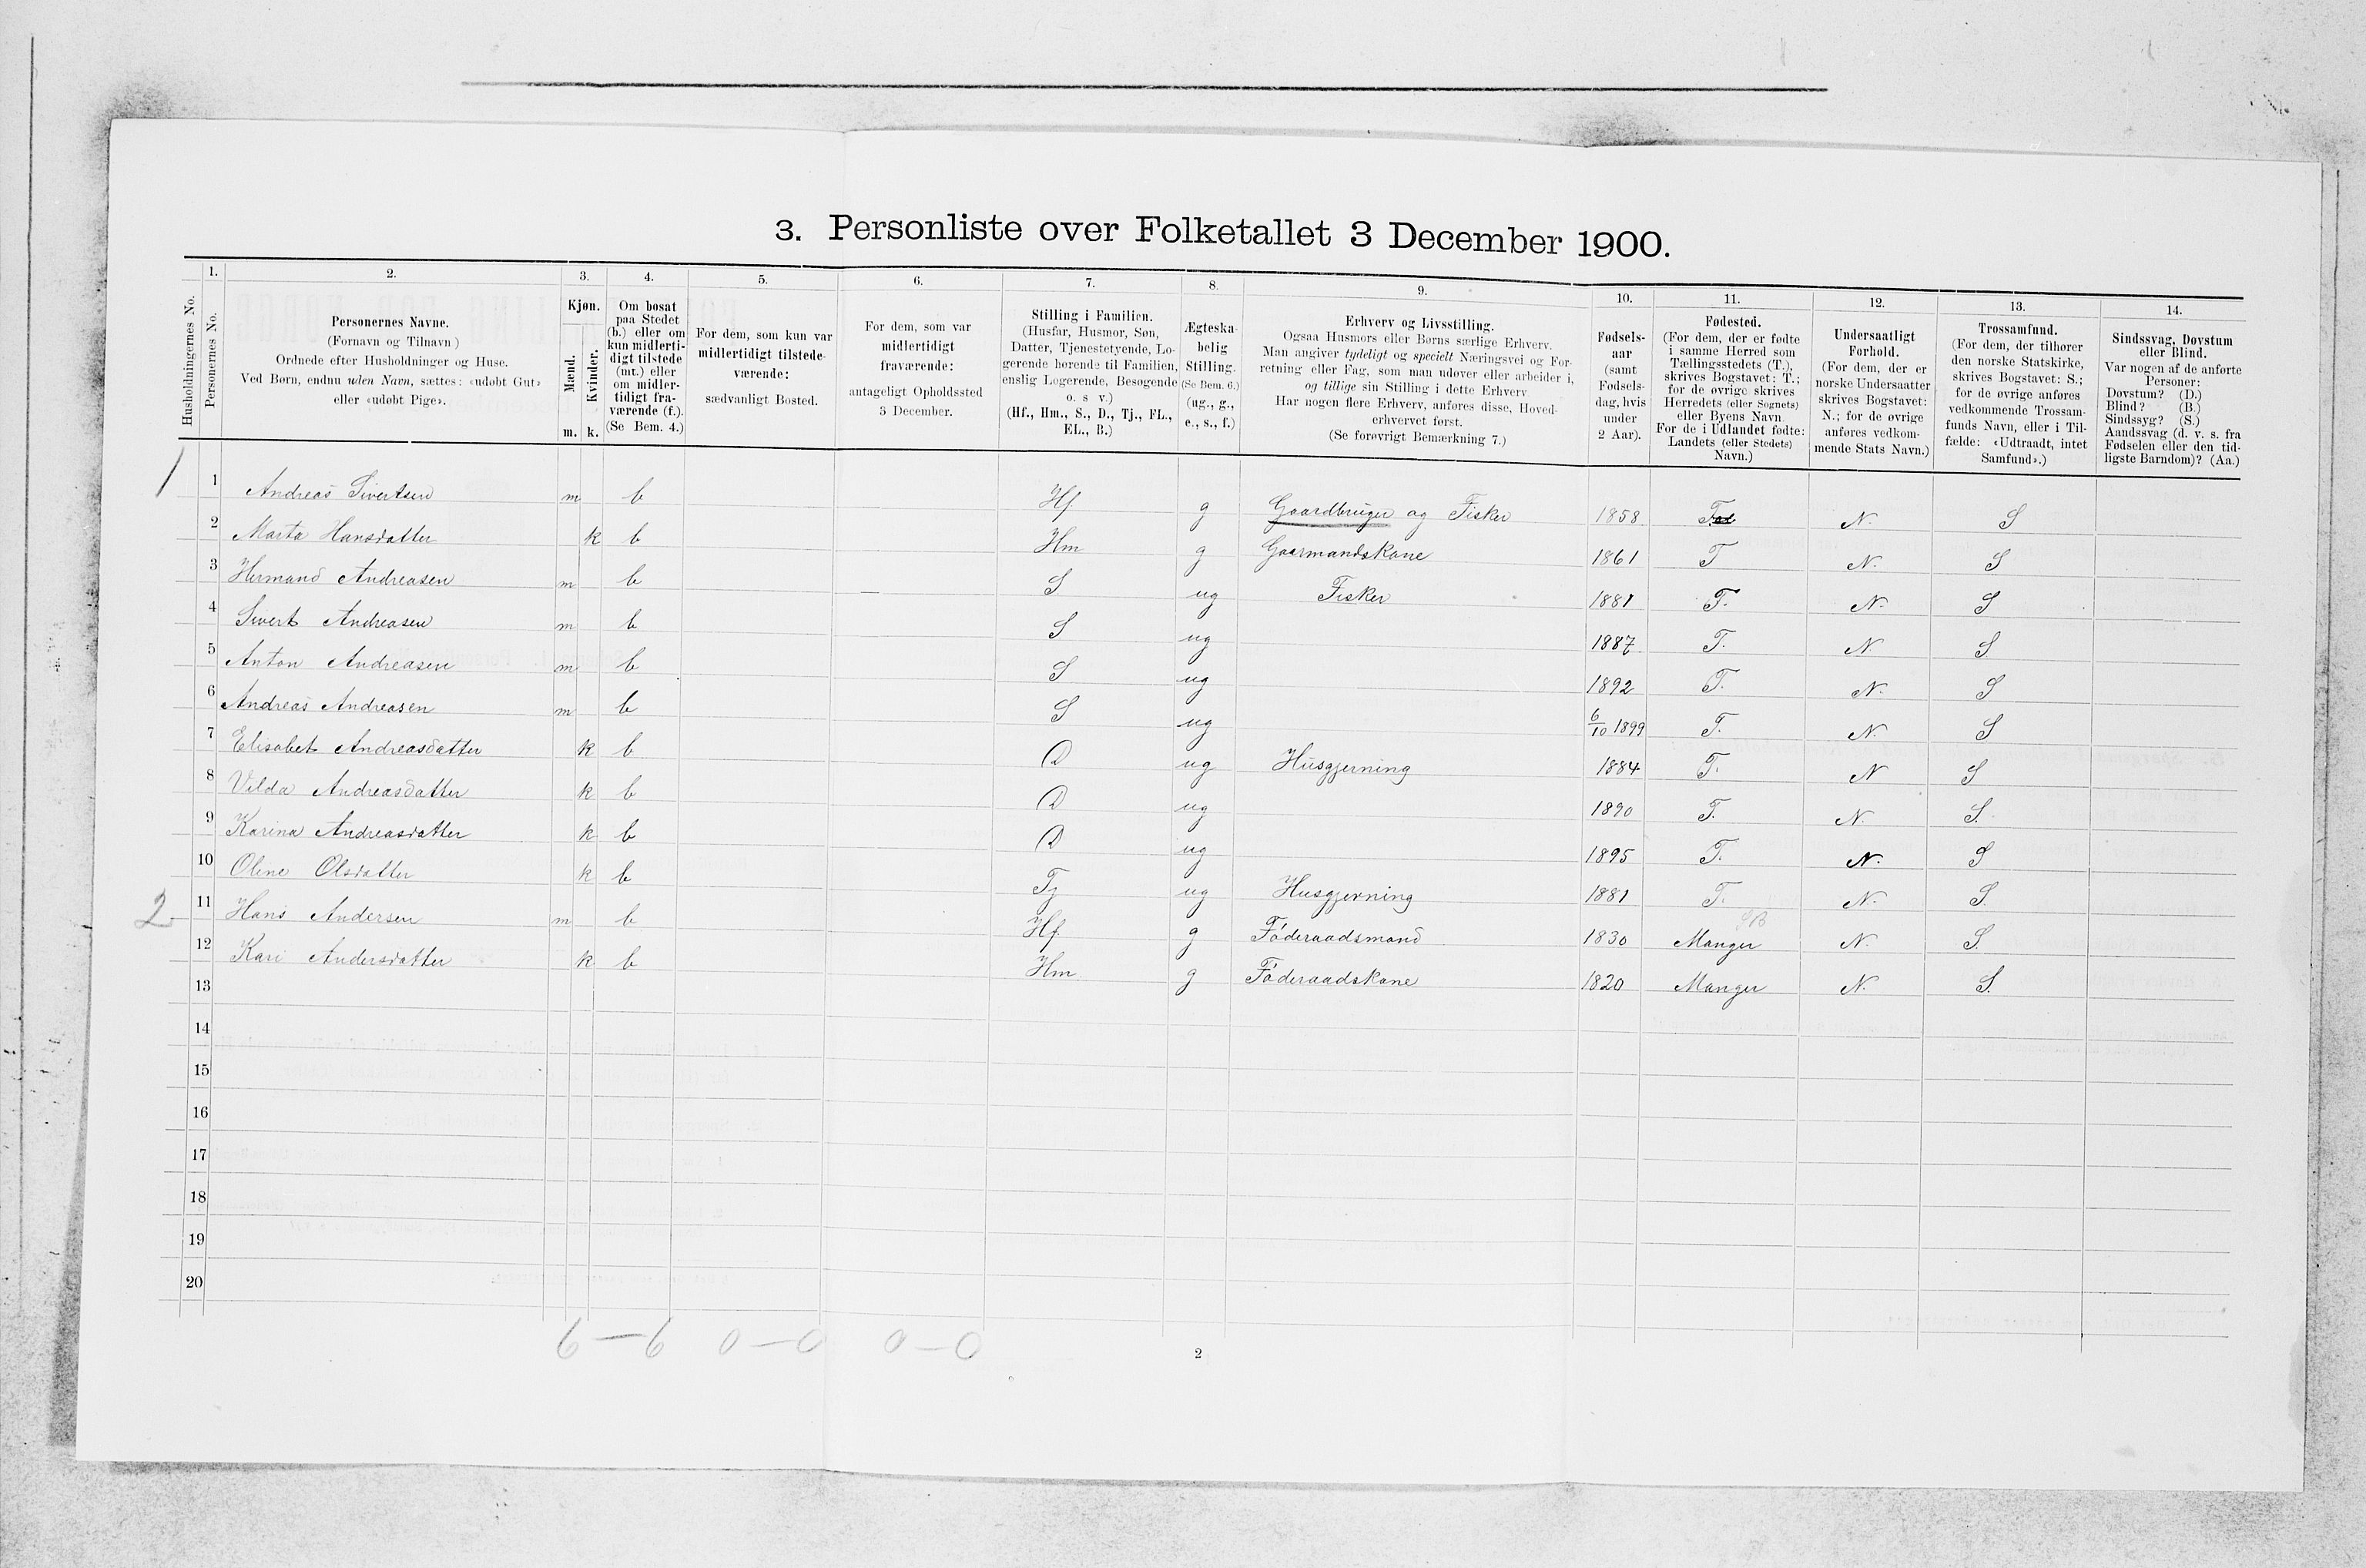 3. Personliste over Folketallet 3 December 1900.
1. 2. 3. 4. 5. 6. 7. 8. 9. 10. 11. 12. 13. 14.
Husholdningernes No.
Personernes No.
Personernes Navne.
(Fornavn og Tilnavn)
Ordnede efter Husholdninger og Huse.
Ved Børn, endnu uden Navn, sættes: «udøbt Gut»
eller «udøbt Pige».
Kjøn.
Mænd.
Kvinder.
m. k.
Om bosat
paa Stedet
(b.) eller om
kun midlerti-
digt tilstede
(mt.) eller
om midler-
tidigt fra-
værende (f.).
(Se Bem. 4.)
For dem, som kun var
midlertidigt tilstede-
værende:
sædvanligt Bosted.
For dem, som var
midlertidigt
fraværende:
antageligt Opholdssted
3 December.
Stilling i Familien.
(Husfar, Husmor, Søn,
Datter, Tjenestetyende, Lo-
gerende hørende til Familien,
enslig Logerende, Besøgende
o. s v.)
(Hf., Hm., S., D., Tj., FL.,
EL., B.)
Ægteska-
belig
Stilling.
(Se Bem. 6.)
(ug., g.,
e., s., f.)
Erhverv og Livsstilling.
Ogsaa Husmors eller Børns særlige Erhverv.
Man angiver tydeligt og specielt Næringsvei og For-
retning eller Fag, som man udøver eller arbeider i,
og tillige sin Stilling i dette Erhverv
Har nogen flere Erhverv, anføres disse, Hoved-
erhvervet først.
(Se forøvrigt Bemærkning 7.)
Fødsels-
aar
(samt
Fødsels-
dag, hvis
under
2 Aar).
Fødested.
(For dem, der er fødte
i samme Herred som
Tællingsstedets (T.),
skrives Bogstavet: T.;
for de øvrige skrives
Herredets (eller Sognets)
eller Byens Navn
For de i Udlandet fødte:
Landets (eller Stedets)
Navn.)
Undersaatligt
Forhold.
(For dem, der er
norske Undersaatter
skrives Bogstavet:
N.; for de øvrige
anføres vedkom-
mende Stats Navn.)
Trossamfund.
(For dem, der tilhører
den norske Statskirke,
skrives Bogstavet: S.;
for de øvrige anføres
vedkommende Trossam-
funds Navn, eller i Til-
fælde: «Udtraadt, intet
Samfund».)
Sindssvag, Døvstum
eller Blind.
Var nogen af de anførte
Personer:
Døvstum? (D.)
Blind? (B.)
Sindssyg? (S.)
Aandssvag (d. v. s. fra
Fødselen eller den tid-
ligste Barndom)? (Aa.)
1 1 Andreas Sivertsen m b Hf g Gaardbruger og Fisker 1858 T N. S
2 Marta Hansdatter k b Hm g Gaarmandskone 1861 T N. S
3 Hermand Andreasen m b S ug Fisker 1881 T. N. S
4 Sivert Andreasen m b S ug 1887 T. N S
5 Anton Andreasen m b S ug 1892 T. N. S
6 Andreas Andreasen m b S ug 6/10 1899 T. N. S
7 Elisabet Andreasdatter k b D ug Husgjerning 1884 T. N S
8 Vilda Andreasdatter k b D ug 1890 T. N. S.
9 Karina Andreasdatter k b D ug 1895 T. N. S
10 Oline Olsdatter k b Tj ug Husgjerning 1881 T. N. S.
2 11 Hans Andersen m b Hf g Föderaadsmand 1830 Manger N. S.
12 Kari Andersdatter k b Hm g Föderaadskone 1820 Manger N. S.
13
14
15
16
17
18
19
20
6 — 6 0 — 0 0 — 0
2